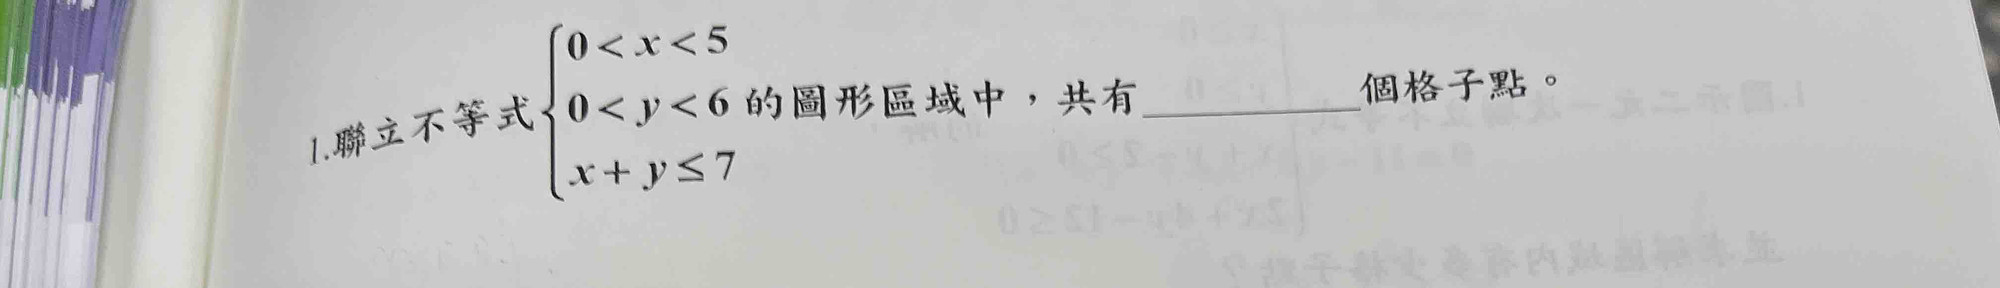 1.聯立不等式{0 < x < 5
0 < y < 6 的圖形區域中，共有________個格子點。
x + y ≤ 7